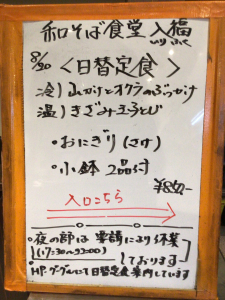 和そば食堂 入福
いり ふく
8/20 <日替定食>
冷) 山かけとオクラのぶっかけ
温) きざみ玉子とじ
・おにぎり (さけ)
・小鉢 2品付
¥850-
入口こちら
・夜の部は 要請により休業
(17:30〜22:00)
しております
HP.グーグルにて日替定食案内しています